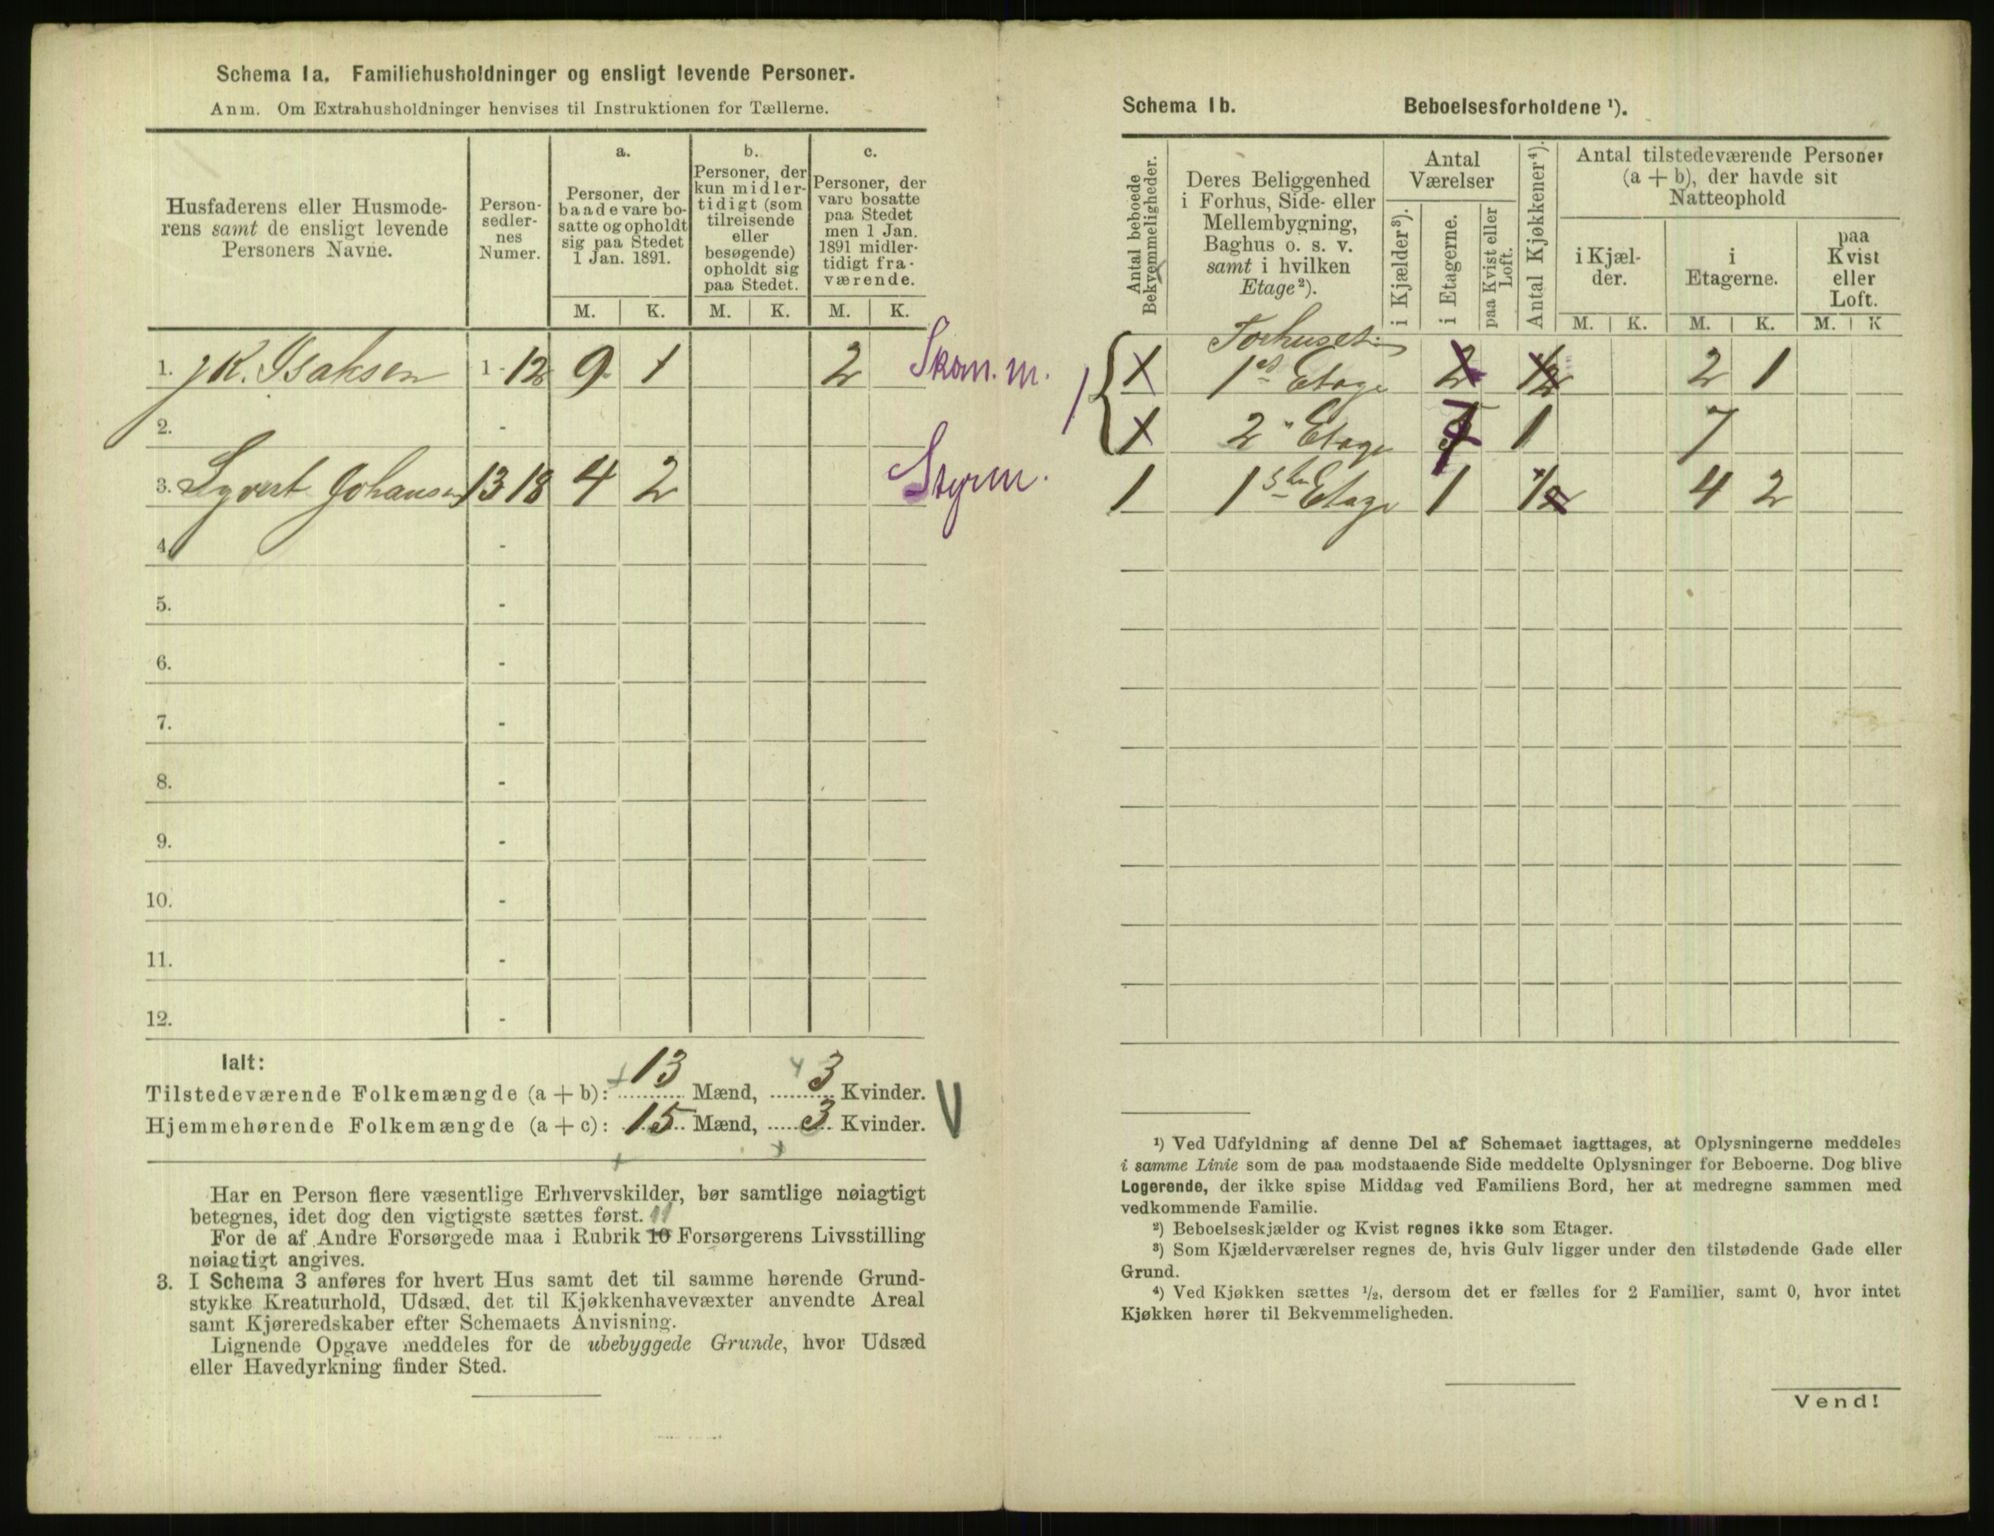 Schema 1a. Familiehusholdninger og ensligt levende Personer.
Anm. Om Extrahusholdninger henvises til Instruktionen for Tællerne.
Husfaderens eller Husmode-
rens samt de ensligt levende
Personers Navne.
Person-
sedler-
nes
Numer.
a.
Personer, der
baade vare bo-
satte og opholdt
sig paa Stedet
1 Jan. 1891.
b.
Personer, der
kun midler-
tidigt (som
tilreisende
eller
besøgende)
opholdt sig
paa Stedet.
c.
Personer, der
vare bosatte
paa Stedet
men 1 Jan.
1891 midler-
tidigt fra-
værende.
M. K. M. K. M. K.
1. K. Isaksen 1 - 12 9 1 2 Skom. m.
2. -
3. Syvert Johansen 13 18 4 2 Styrm.
4. -
5. -
6. -
7. -
8. -
9. -
10. -
11. -
12. -
Ialt:
Tilstedeværende Folkemængde (a + b): 13 Mænd, 3 Kvinder.
Hjemmehørende Folkemængde (a + c): 15 Mænd, 3 Kvinder.
Har en Person flere væsentlige Erhvervskilder, bør samtlige nøiagtigt
betegnes, idet dog den vigtigste sættes først.
For de af Andre Forsørgede maa i Rubrik 10 11 Forsørgerens Livsstilling
nøiagtigt angives.
3. I Schema 3 anføres for hvert Hus samt det til samme hørende Grund-
stykke Kreaturhold, Udsæd, det til Kjøkkenhavevæxter anvendte Areal
samt Kjøreredskaber efter Schemaets Anvisning.
Lignende Opgave meddeles for de ubebyggede Grunde, hvor Udsæd
eller Havedyrkning finder Sted.
Schema 1b. Beboelsesforholdene ¹).
Antal beboede
Bekvemmeligheder.
Deres Beliggenhed
i Forhus, Side- eller
Mellembygning,
Baghus o. s. v.
samt i hvilken
Etage²).
Antal
Værelser
i Kjælder³).
i Etagerne.
paa Kvist eller
Loft.
Antal Kjøkkener⁴).
Antal tilstedeværende Personer
(a + b), der havde sit
Natteophold
i Kjæl-
der.
i
Etagerne.
paa
Kvist
eller
Loft.
M. K. M. K. M. K
Forhuset
1 1 1ste Etage 2 1/2 2 1
1 2 " Etage 7 1 7
1 1ste Etage 1 1/2 4 2
¹) Ved Udfyldning af denne Del af Schemaet iagttages, at Oplysningerne meddeles
i samme Linie som de paa modstaaende Side meddelte Oplysninger for Beboerne. Dog blive
Logerende, der ikke spise Middag ved Familiens Bord, her at medregne sammen med
vedkommende Familie.
²) Beboelseskjælder og Kvist regnes ikke som Etager.
³) Som Kjælderværelser regnes de, hvis Gulv ligger under den tilstødende Gade eller
Grund.
⁴) Ved Kjøkken sættes ½, dersom det er fælles for 2 Familier, samt 0, hvor intet
Kjøkken hører til Bekvemmeligheden.
Vend!